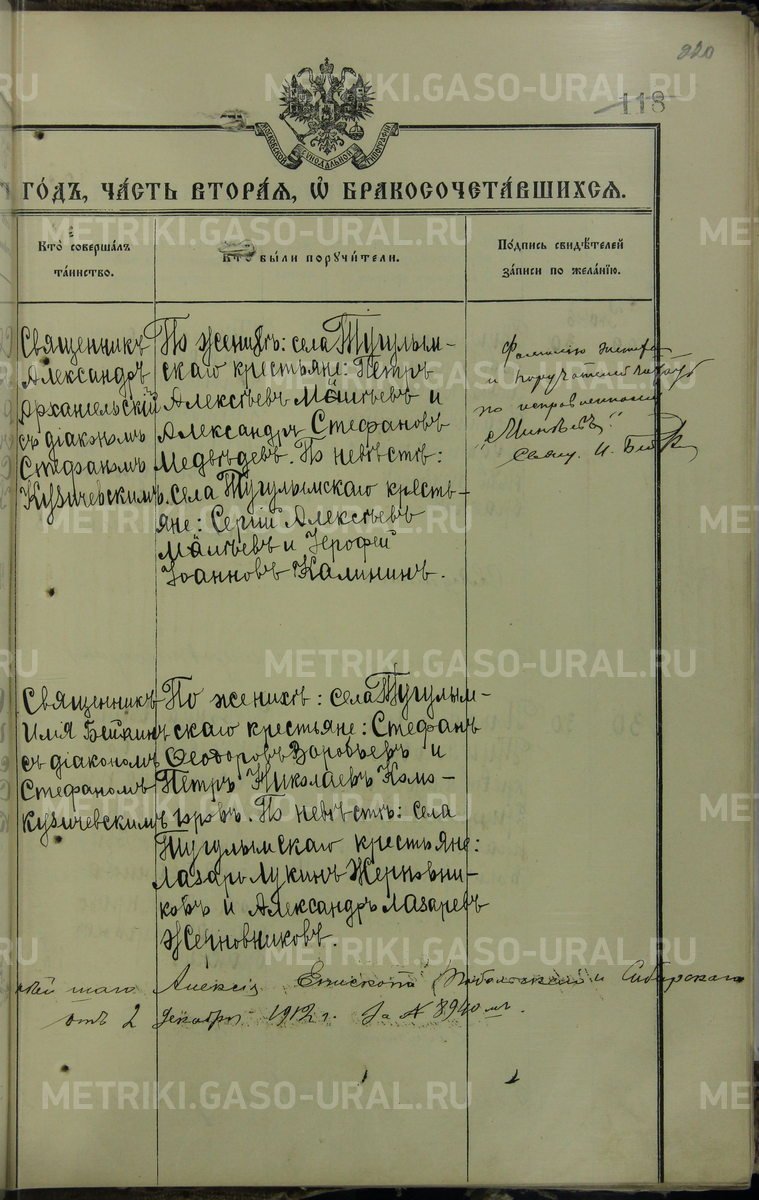 220
118
МОСКОВСКОЙ СѴНОДАЛЬНОЙ ТИПОГРАФІИ
ГОДЪ, ЧАСТЬ ВТОРАЯ, Ѡ БРАКОСОЧЕТАВШИХСЯ.
Кто совершалъ таинство.
Кто были поручители.
Подпись свидѣтелей записи по желанію.
Священникъ
Александръ
Архангельскій
съ діакономъ
Стефаномъ
Кузичевскимъ.
По женихѣ: села Тугулым-
скаго крестьяне: Петръ
Алексѣевъ и
Александръ Стефановъ
Медвѣдевъ. По невѣстѣ:
села Тугулымскаго кресть-
яне: Сергій Алексѣевъ
и Іерофей
Іоанновъ Калининъ.
Фамилію
и поручателей
по исправленному
"Минѣевъ".
Свящ. И.
Священникъ
Илія
съ діакономъ
Стефаномъ
Кузичевскимъ
По женихѣ: села Тугулым-
скаго крестьяне: Стефанъ
Ѳеодоровъ Воробьевъ и
Петръ Николаевъ Комо-
горовъ. По невѣстѣ: села
Тугулымскаго крестьяне:
Лазарь Лукинъ Жерновни-
ковъ и Александръ Лазаревъ
Жерновниковъ.
Алексія Епископа Тобольскаго и Сибирскаго
отъ 2 декабря 1912 г. за № 8940 мъ.
METRIKI.GASO-URAL.RU